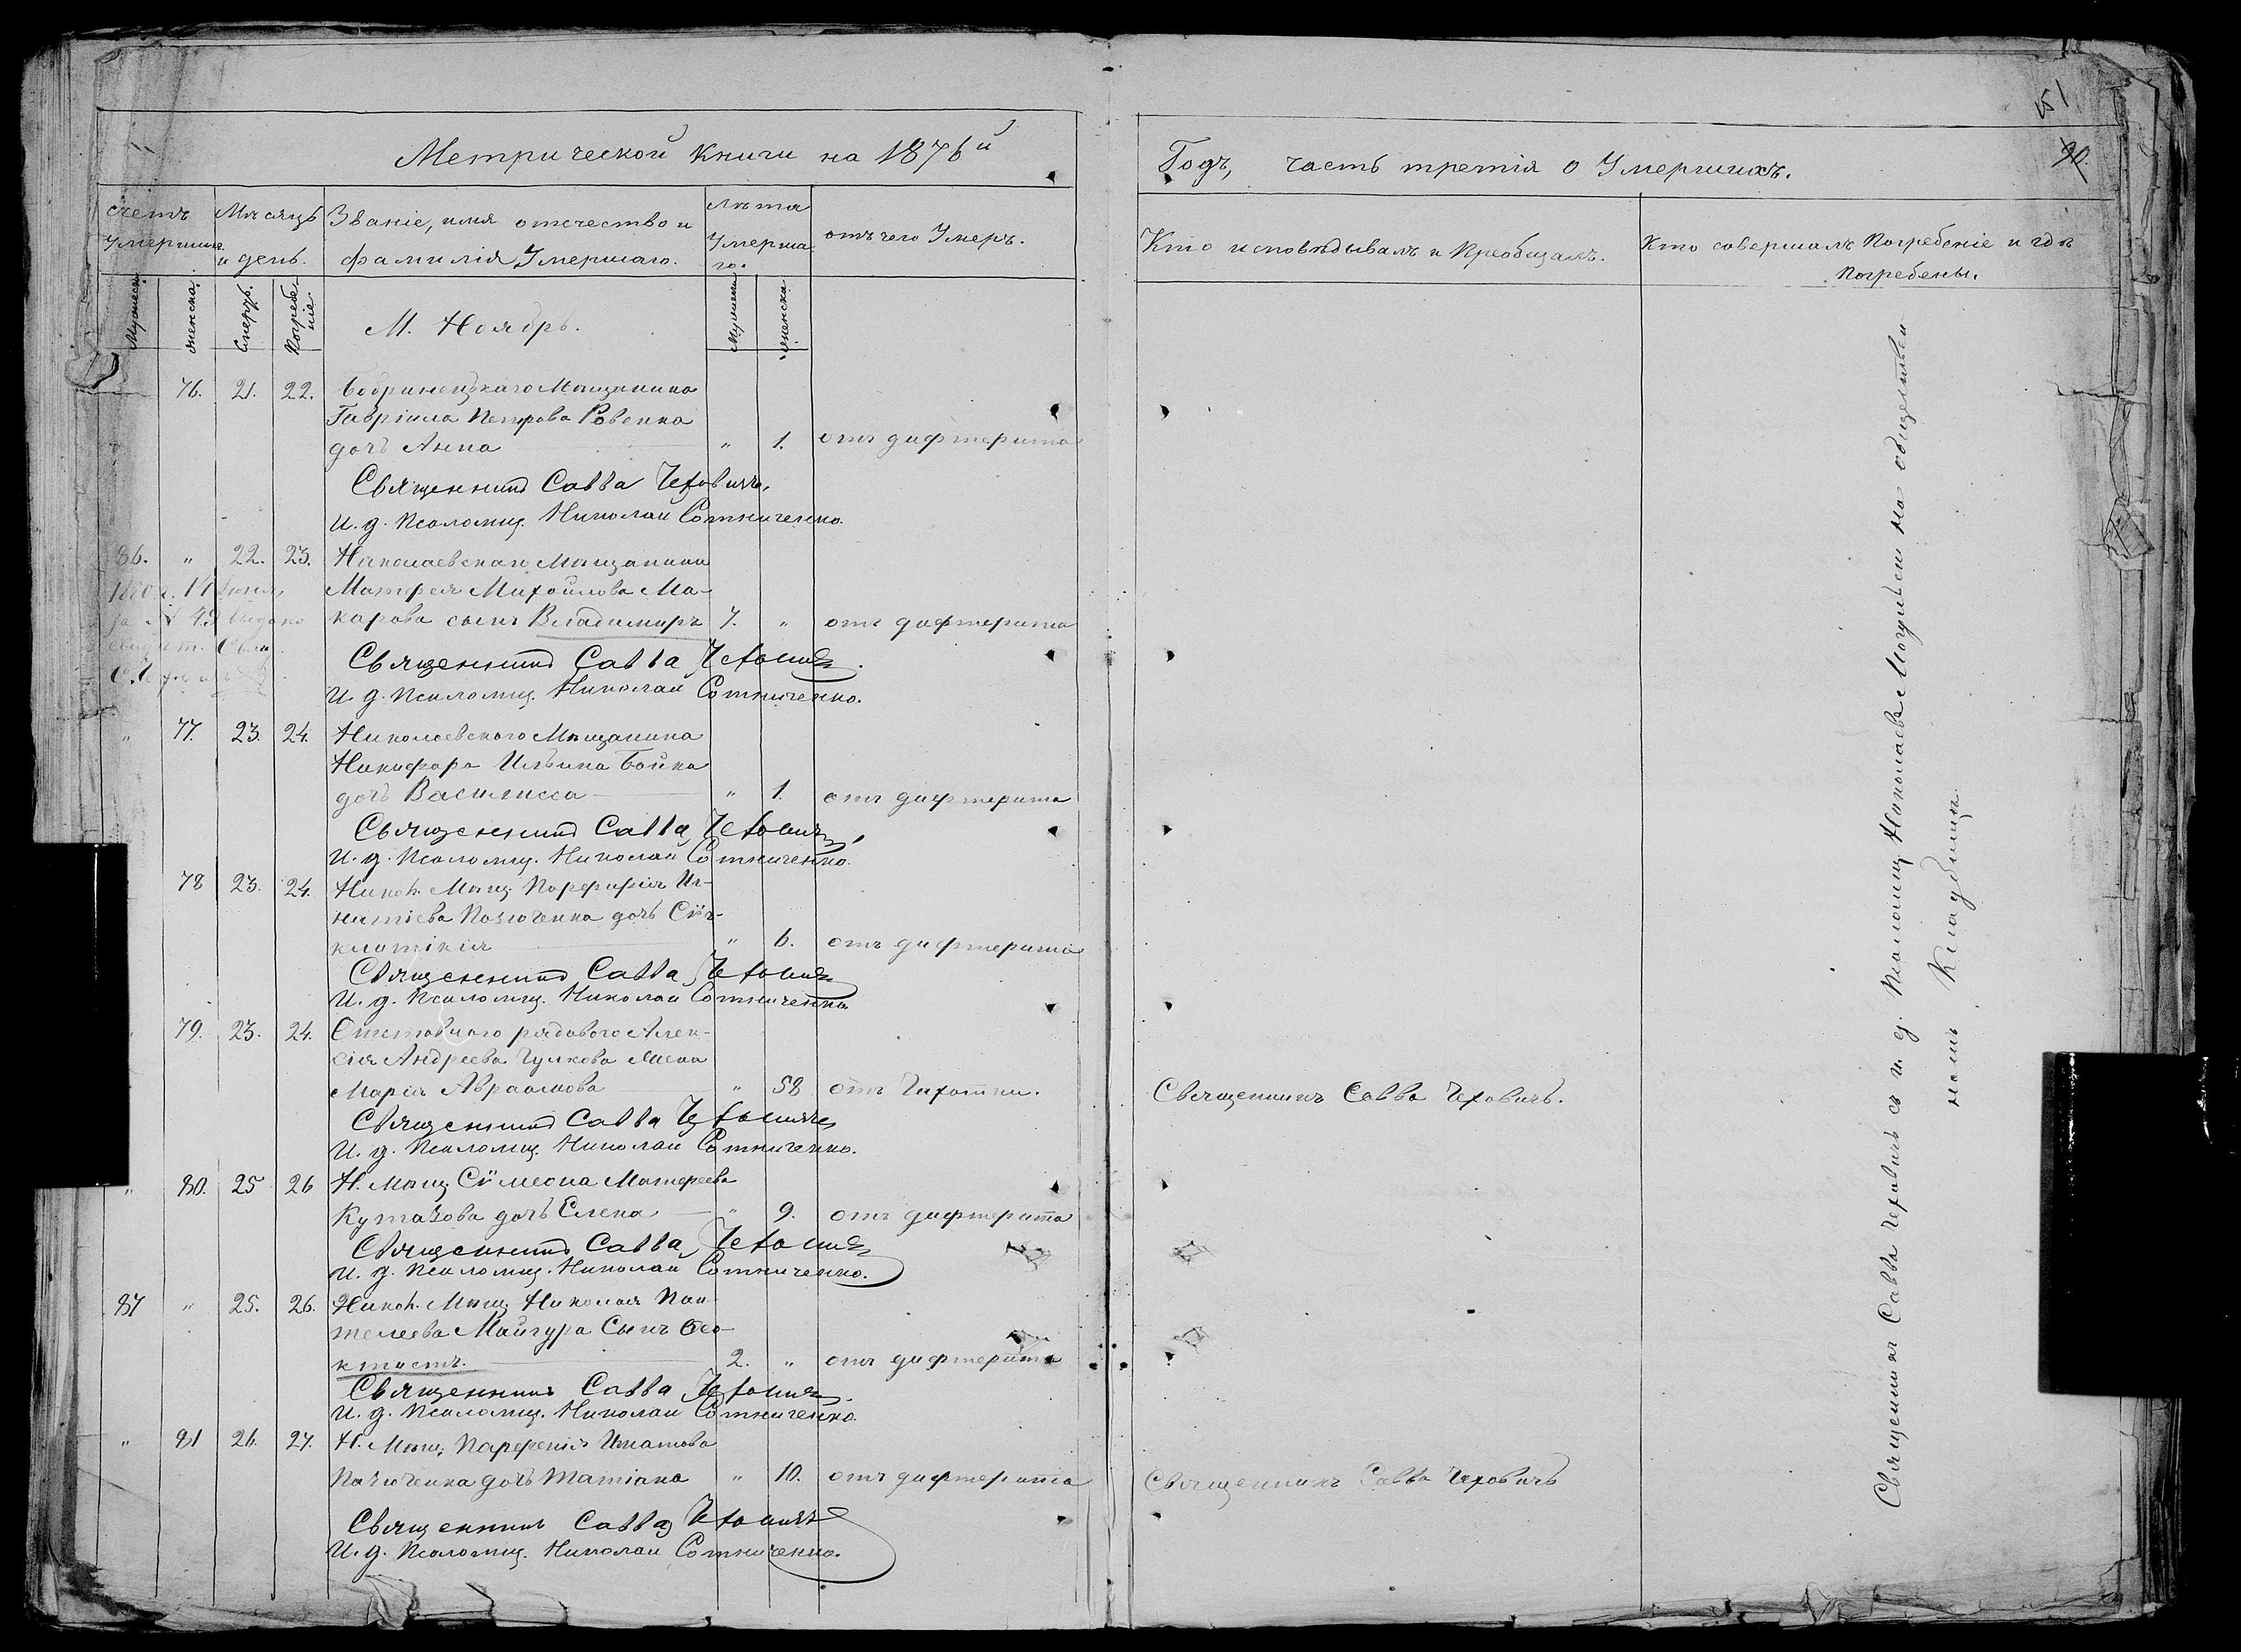 Метрической Книги на 1876й
счетъ Умершихъ
Мѣсяцъ и день.
Званіе, имя отечество и
фамилія Умершаго.
лѣта Умершаго.
отъ чего Умеръ.
Мужеска.
женска.
Смерть.
Погребеніе.
М. Ноябрь.
Мужеска
женска.
76. 21. 22. Бобринецкаго Мѣщанина
Гавріила Петрова Ровенка
дочь Анна „ 1. отъ дифтерита
Священникъ Савва Чеховичъ.
И. д. Псаломщ. Николай Сотниченко.
86. „ 22. 23. Николаевскаго Мѣщанина
Матфея Михайлова Ма-
карова сынъ Владимиръ 7. „ отъ дифтерита
1880 г. 14 Іюня
за № 49 выдано
Священникъ Савва Чеховичъ.
И. д. Псаломщ. Николай Сотниченко.
„ 77. 23. 24. Николаевского Мѣщанина
Никифора Ильина Бойка
дочь Василисса „ 1. отъ дифтерита
Священникъ Савва Чеховичъ
И. д. Псаломщ. Николай Сотниченко.
78 23. 24. Никол. Мѣщ. Порфирія Иг-
натіева дочь Сѵн-
клитікія „ 6. отъ дифтерита
Священникъ Савва Чеховичъ
И. д. Псаломщ. Николай Сотниченко
79. 23. 24. Отставного рядового Алек-
сія Андреева Чулкова жена
Марія Авраамова „ 58 отъ Чахотки.
Священникъ Савва Чеховичъ
И. д. Псаломщ. Николай Сотниченко.
„ 80. 25 26 Н. Мѣщ. Сѵмеона Матфеева
Кутазова дочь Елена „ 9. отъ дифтерита
Священникъ Савва Чеховичъ
И. д. Псаломщ. Николай Сотниченко.
87 „ 25. 26. Никол. Мѣщ. Николая Пан-
телеева Майгура Сынъ Ѳео-
ктистъ. 2. „ отъ дифтерита
Священникъ Савва Чеховичъ.
И. д. Псаломщ. Николай Сотниченко.
„ 81 26. 27. Н. Мѣщ. Парфенія Игнатова
дочь Татіана „ 10. отъ дифтерита
Священникъ Савва Чеховичъ
И. д. Псаломщ. Николай Сотниченко.
51
90.
Годъ, часть третія о Умершихъ.
Кто исповѣдывалъ и Преобщалъ.
Кто совершалъ Погребеніе и гдѣ
Погребены.
Священникъ Савва Чеховичъ.
Священникъ Савва Чеховичъ
Священникъ Савва Чеховичъ съ и. д. Псаломщ. Николаевъ Могулѣвымъ на общественномъ Кладбищѣ.